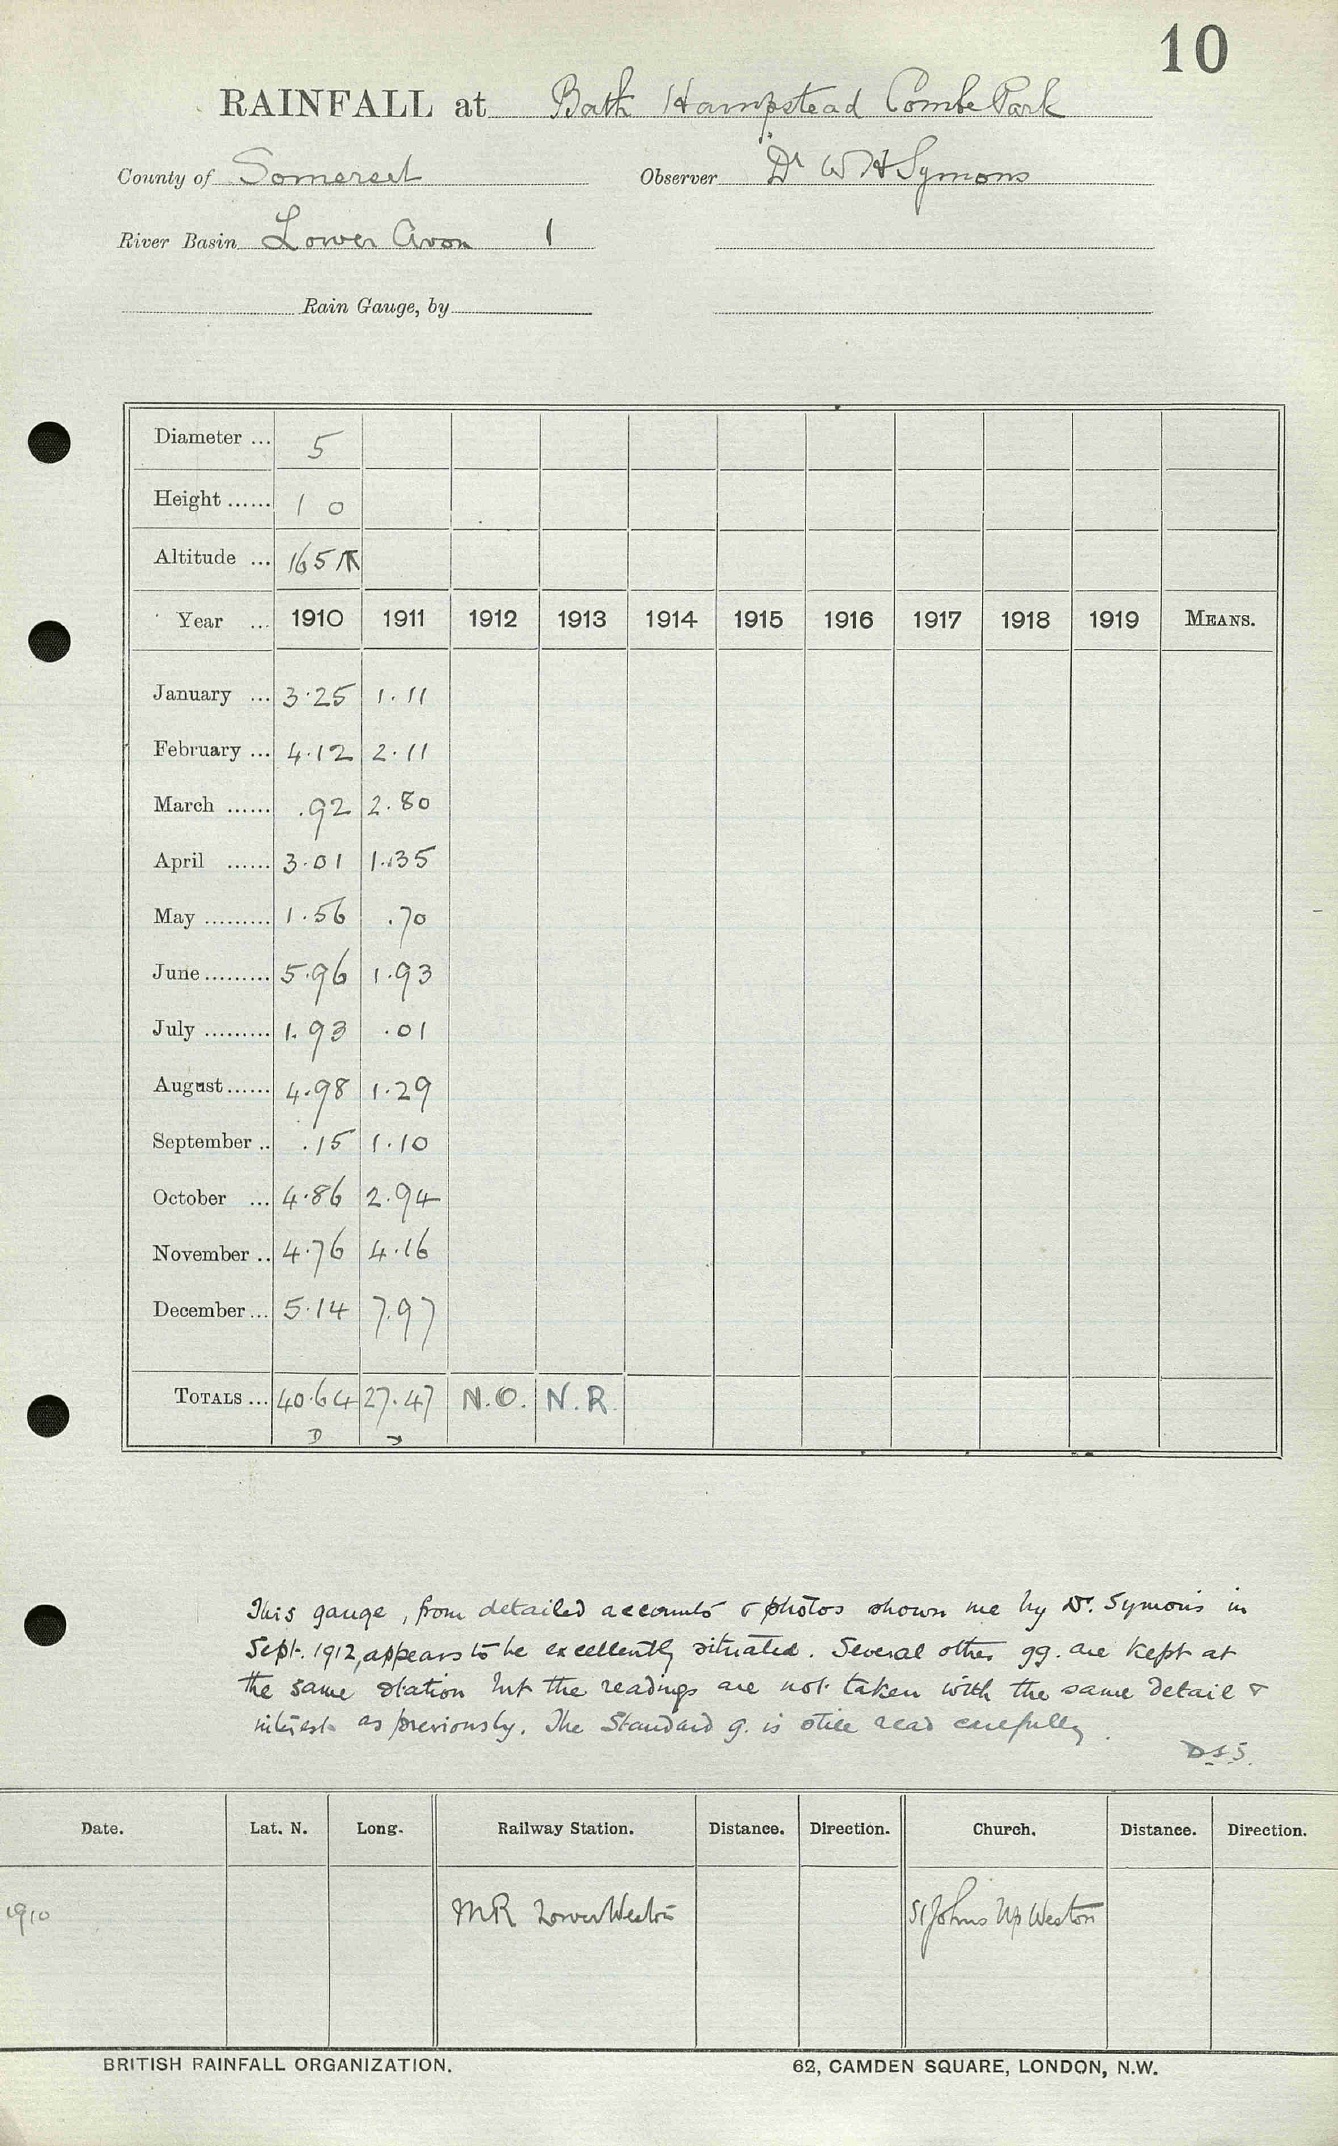 10
RAINFALL at Bath Hampstead Combe Park
County of Somerset Observer Dr W H Symons
River Basin Lower Avon 1
Rain Gauge, by
Diameter ... 5
Height ...... 1 0
Altitude ... 165
Year ... 1910 1911 1912 1913 1914 1915 1916 1917 1918 1919 MEANS.
January ... 3.25 1.11
February ... 4.12 2.11
March ...... .92 2.80
April ...... 3.01 1.35
May ......... 1.56 .70
June ......... 5.96 1.93
July ......... 1.93 .01
August ...... 4.98 1.29
September .. .15 1.10
October ... 4.86 2.94
November .. 4.76 4.16
December ... 5.14 7.97
TOTALS ... 40.64 27.47 N.O. N.R.
D
This gauge, from detailed accounts & photos shown me by Dr. Symons in
Sept. 1912, appears to be excellently situated. Several other gg. are kept at
the same station but the readings are not taken with the same detail &
interest as previously. The Standard g. is still read carefully.
Date. Lat. N. Long. Railway Station. Distance. Direction. Church. Distance. Direction.
1910 MR Lower Weston St Johns Up Weston
BRITISH RAINFALL ORGANIZATION. 62, CAMDEN SQUARE, LONDON, N.W.